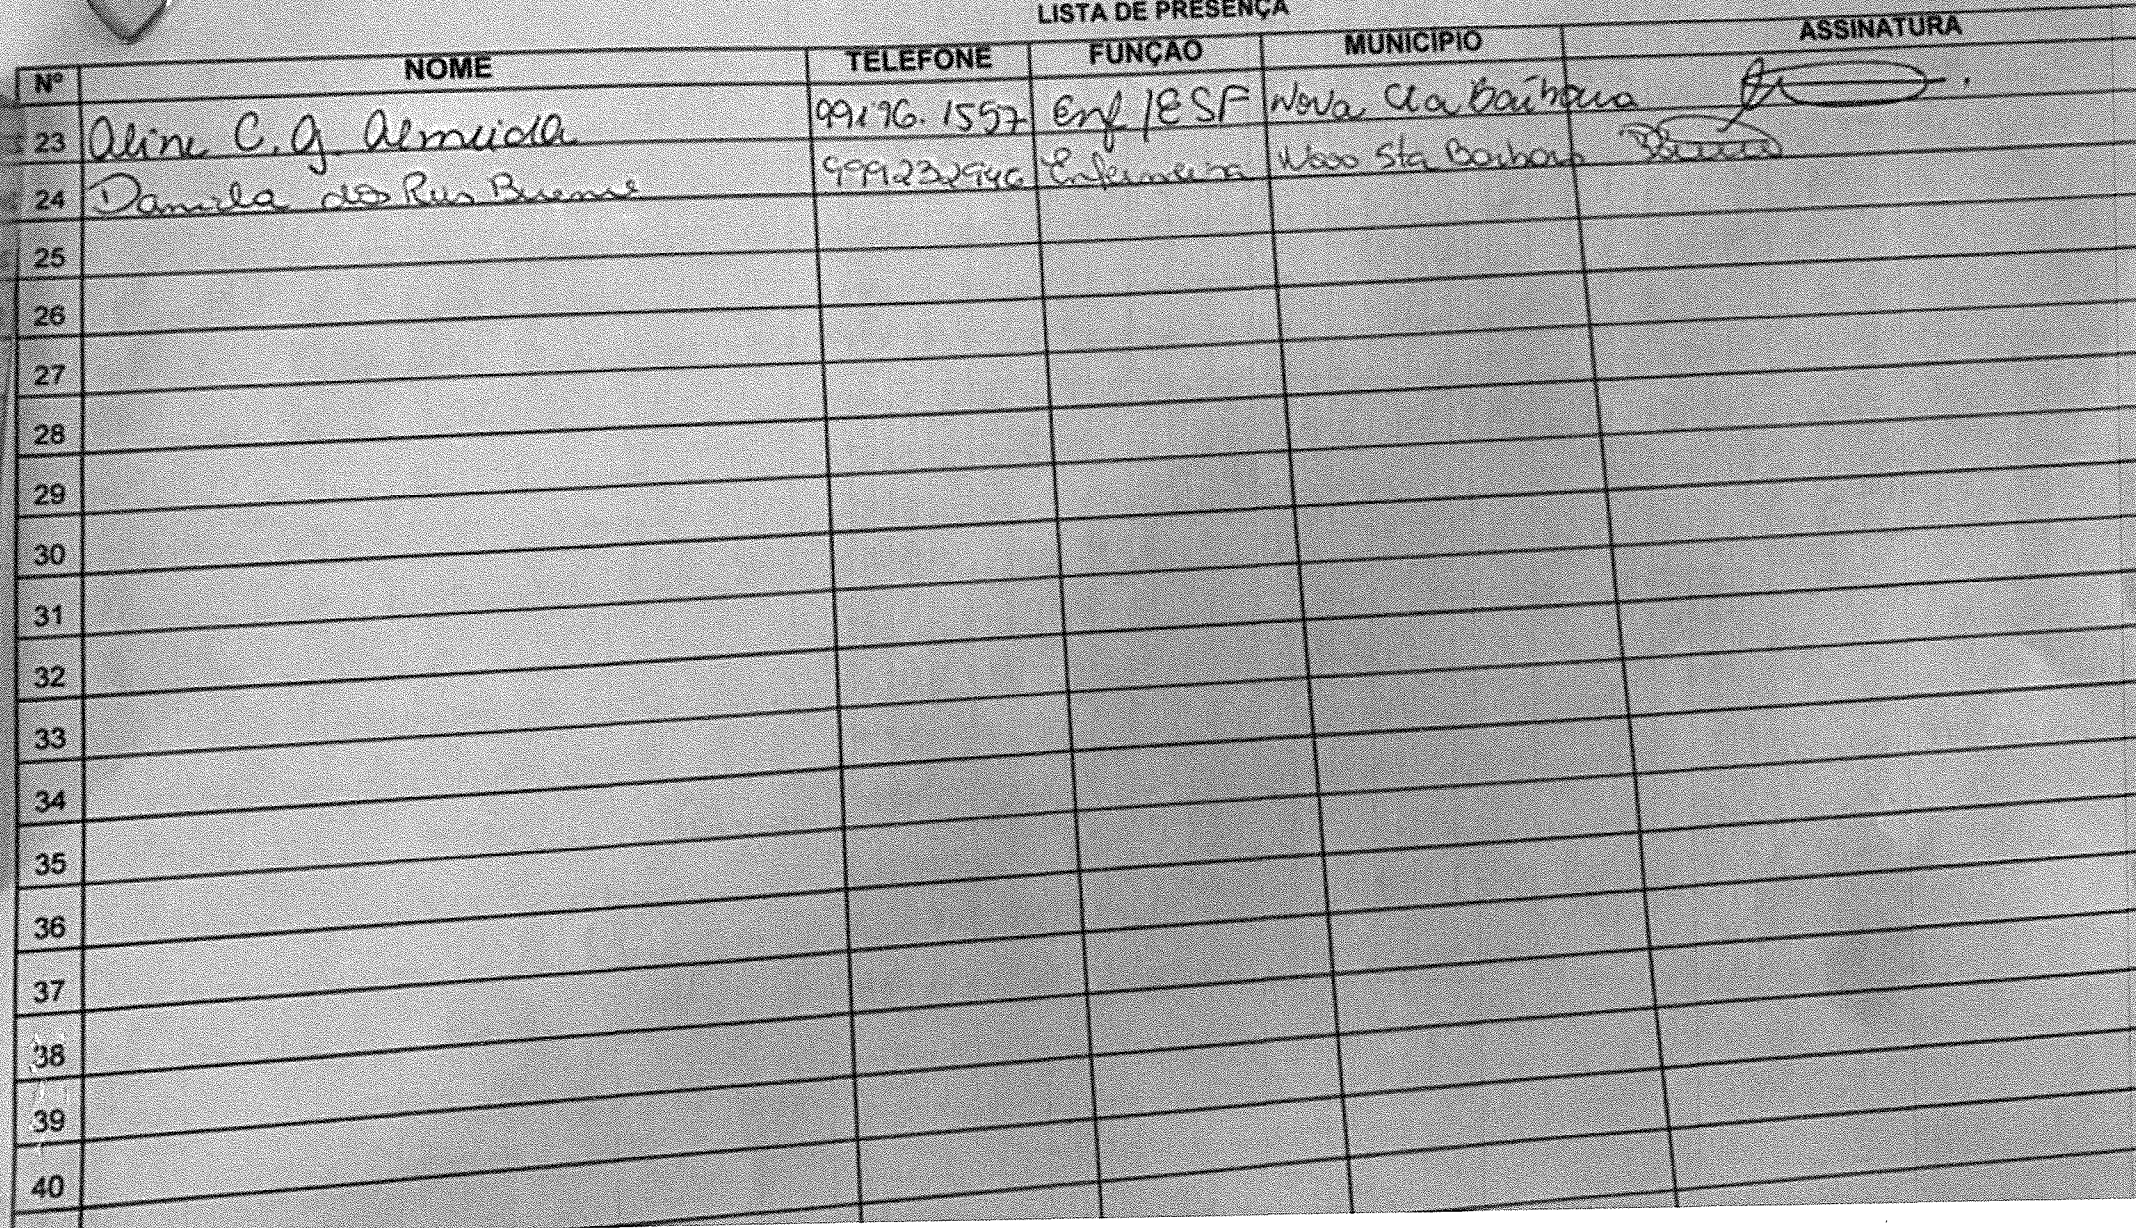 LISTA DE PRESENÇA
Nº NOME TELEFONE FUNÇÃO MUNICIPIO ASSINATURA
23 Aline C. G. Almeida 99196.1557 Enf/ESF Nova Sta Bárbara
24 Daniela dos Reis Bueno Enfermeira Nova Sta Barbara
25
26
27
28
29
30
31
32
33
34
35
36
37
38
39
40